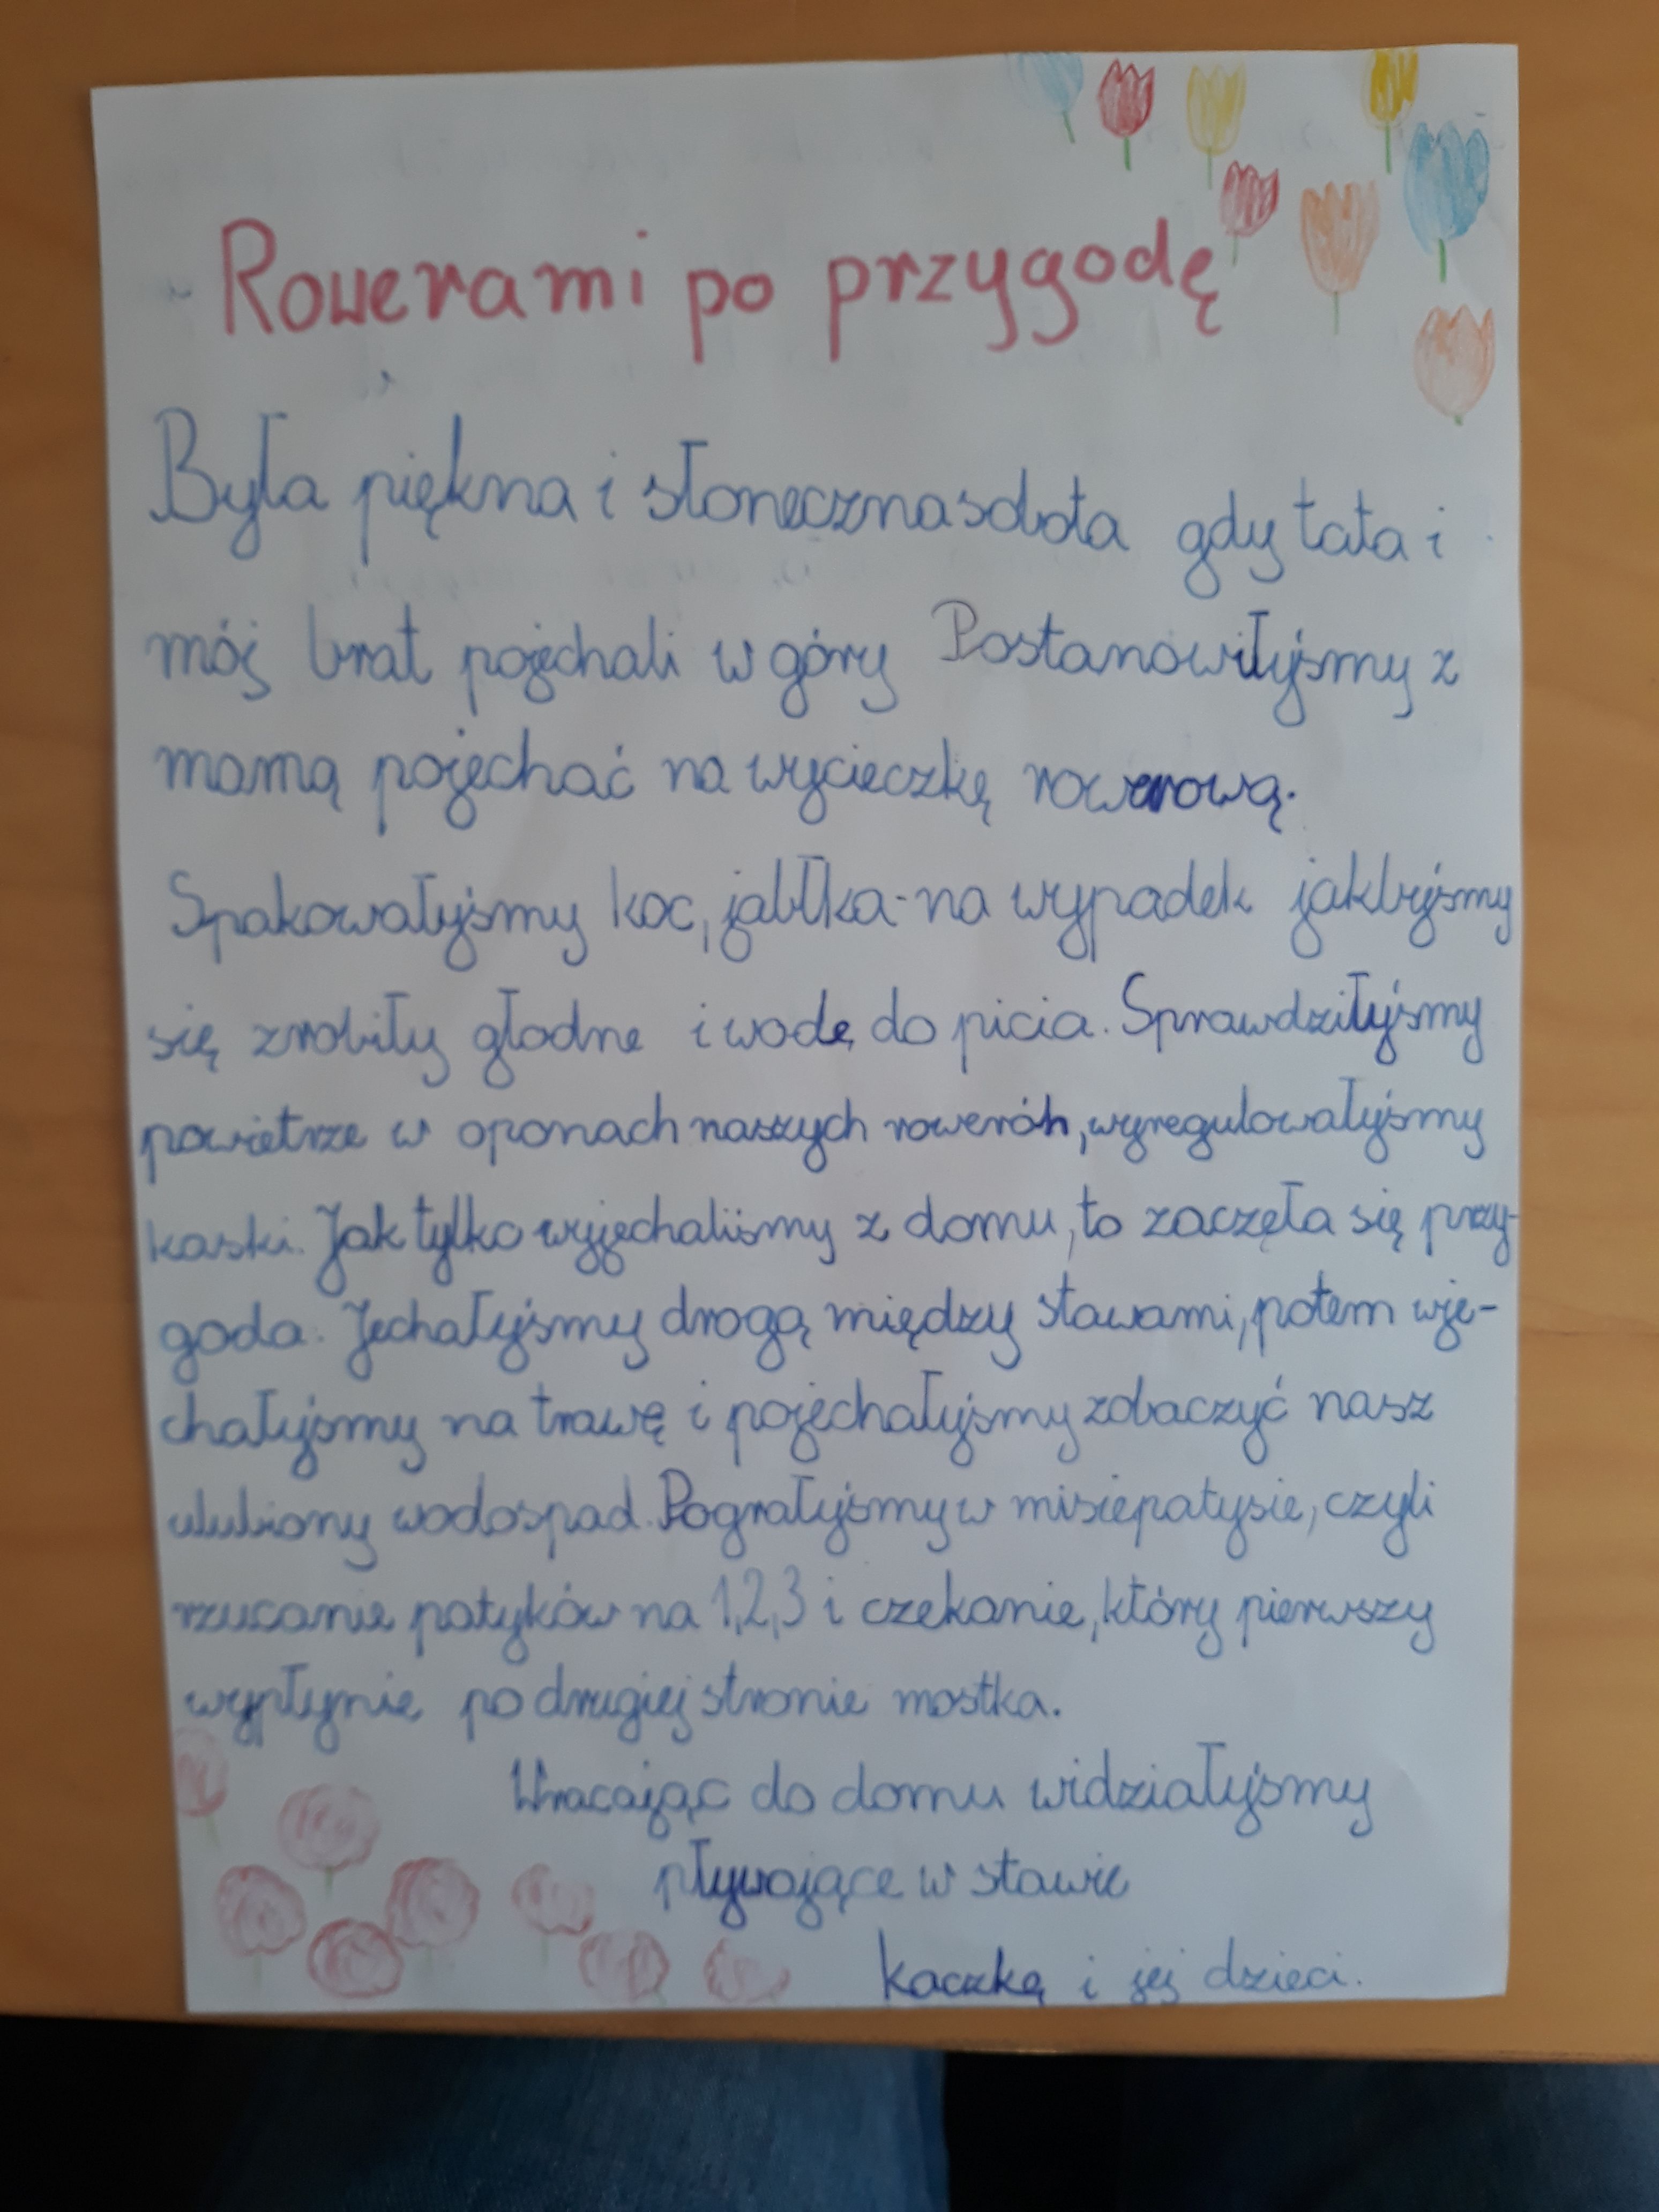 Rowerami po przygodę
Była piękna i słoneczna sobota gdy tata i
mój brat pojechali w góry Postanowiłyśmy z
mamą pojechać na wycieczkę rowerową.
Spakowałyśmy koc, jabłka-na wypadek jakbyśmy
się zrobiły głodne i wodę do picia. Sprawdziłyśmy
powietrze w oponach naszych rowerów, wyregulowałyśmy
kaski. Jak tylko wyjechaliśmy z domu, to zaczęła się przy-
goda. Jechałyśmy drogą między stawami, potem wje-
chałyśmy na trawę i pojechałyśmy zobaczyć nasz
ulubiony wodospad. Pograłyśmy w misiepatysie, czyli
rzucanie patyków na 1,2,3 i czekanie, który pierwszy
wypłynie po drugiej stronie mostka.
Wracając do domu widziałyśmy
pływające w stawie
kaczkę i jej dzieci.